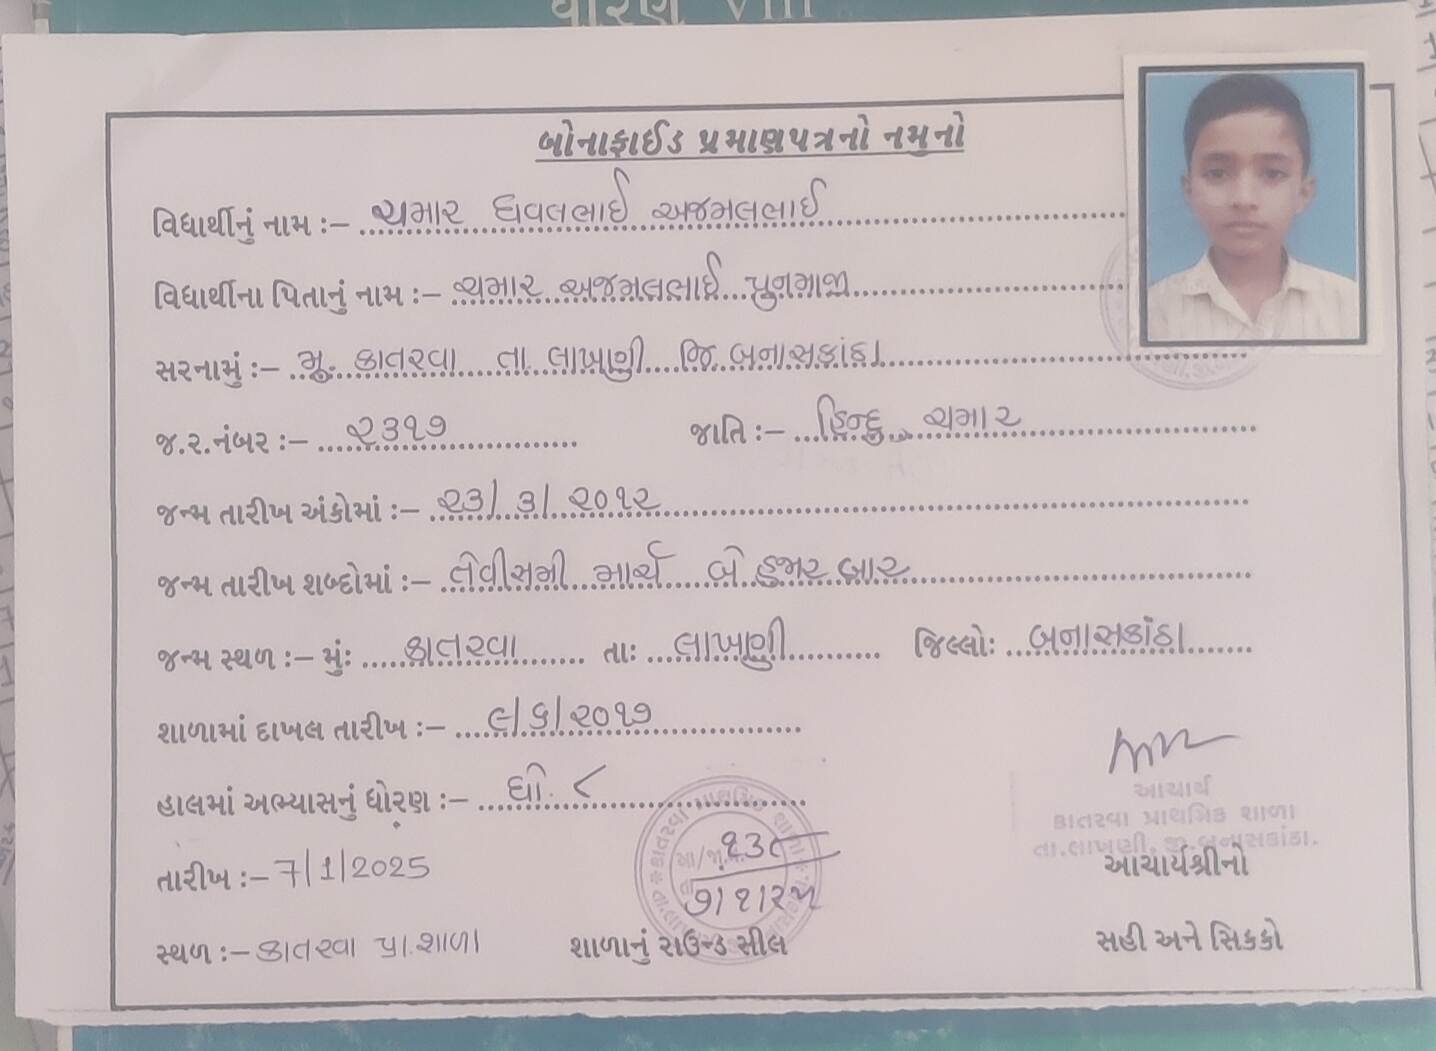 ધોરણ VIII
બોનાફાઈડ પ્રમાણપત્રનો નમુનો
વિદ્યાર્થીનું નામ :– ચમાર ધવલભાઈ અજમલભાઈ
વિદ્યાર્થીના પિતાનું નામ :– ચમાર અજમલભાઈ પુનમાજી
સરનામું :– મુ. કાતરવા તા. લાખણી જિ. બનાસકાંઠા
જ.ર.નંબર :– ૨૩૧૭ જાતિ :– હિન્દુ ચમાર
જન્મ તારીખ અંકોમાં :– ૨૩/૩/૨૦૧૨
જન્મ તારીખ શબ્દોમાં :– તેવીસમી માર્ચ બે હજાર બાર
જન્મ સ્થળ :– મુંઃ કાતરવા તાઃ લાખણી જિલ્લોઃ બનાસકાંઠા
શાળામાં દાખલ તારીખ :– ૯/૬/૨૦૧૭
હાલમાં અભ્યાસનું ધોરણ :– ધો. ૮
આચાર્ય
કાતરવા પ્રાથમિક શાળા
તા.લાખણી, જી.બનાસકાંઠા.
તારીખ :– 7/1/2025 ૭/૧/૨૫ આચાર્યશ્રીનો
સ્થળ :– કાતરવા પ્રા. શાળા શાળાનું રાઉન્ડ સીલ સહી અને સિક્કો